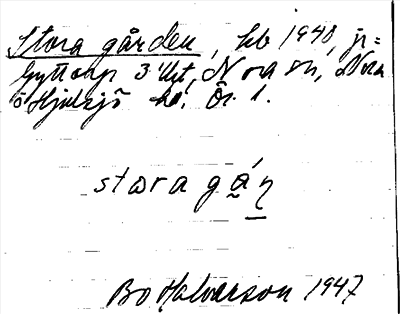 Stora gården, hb 1940, jr=
Gyttorp 3 1/4 kt, Nora sn, Nora
o Hjulsjö hd, Ör. l.
stora gán
Bo Halvarson 1947